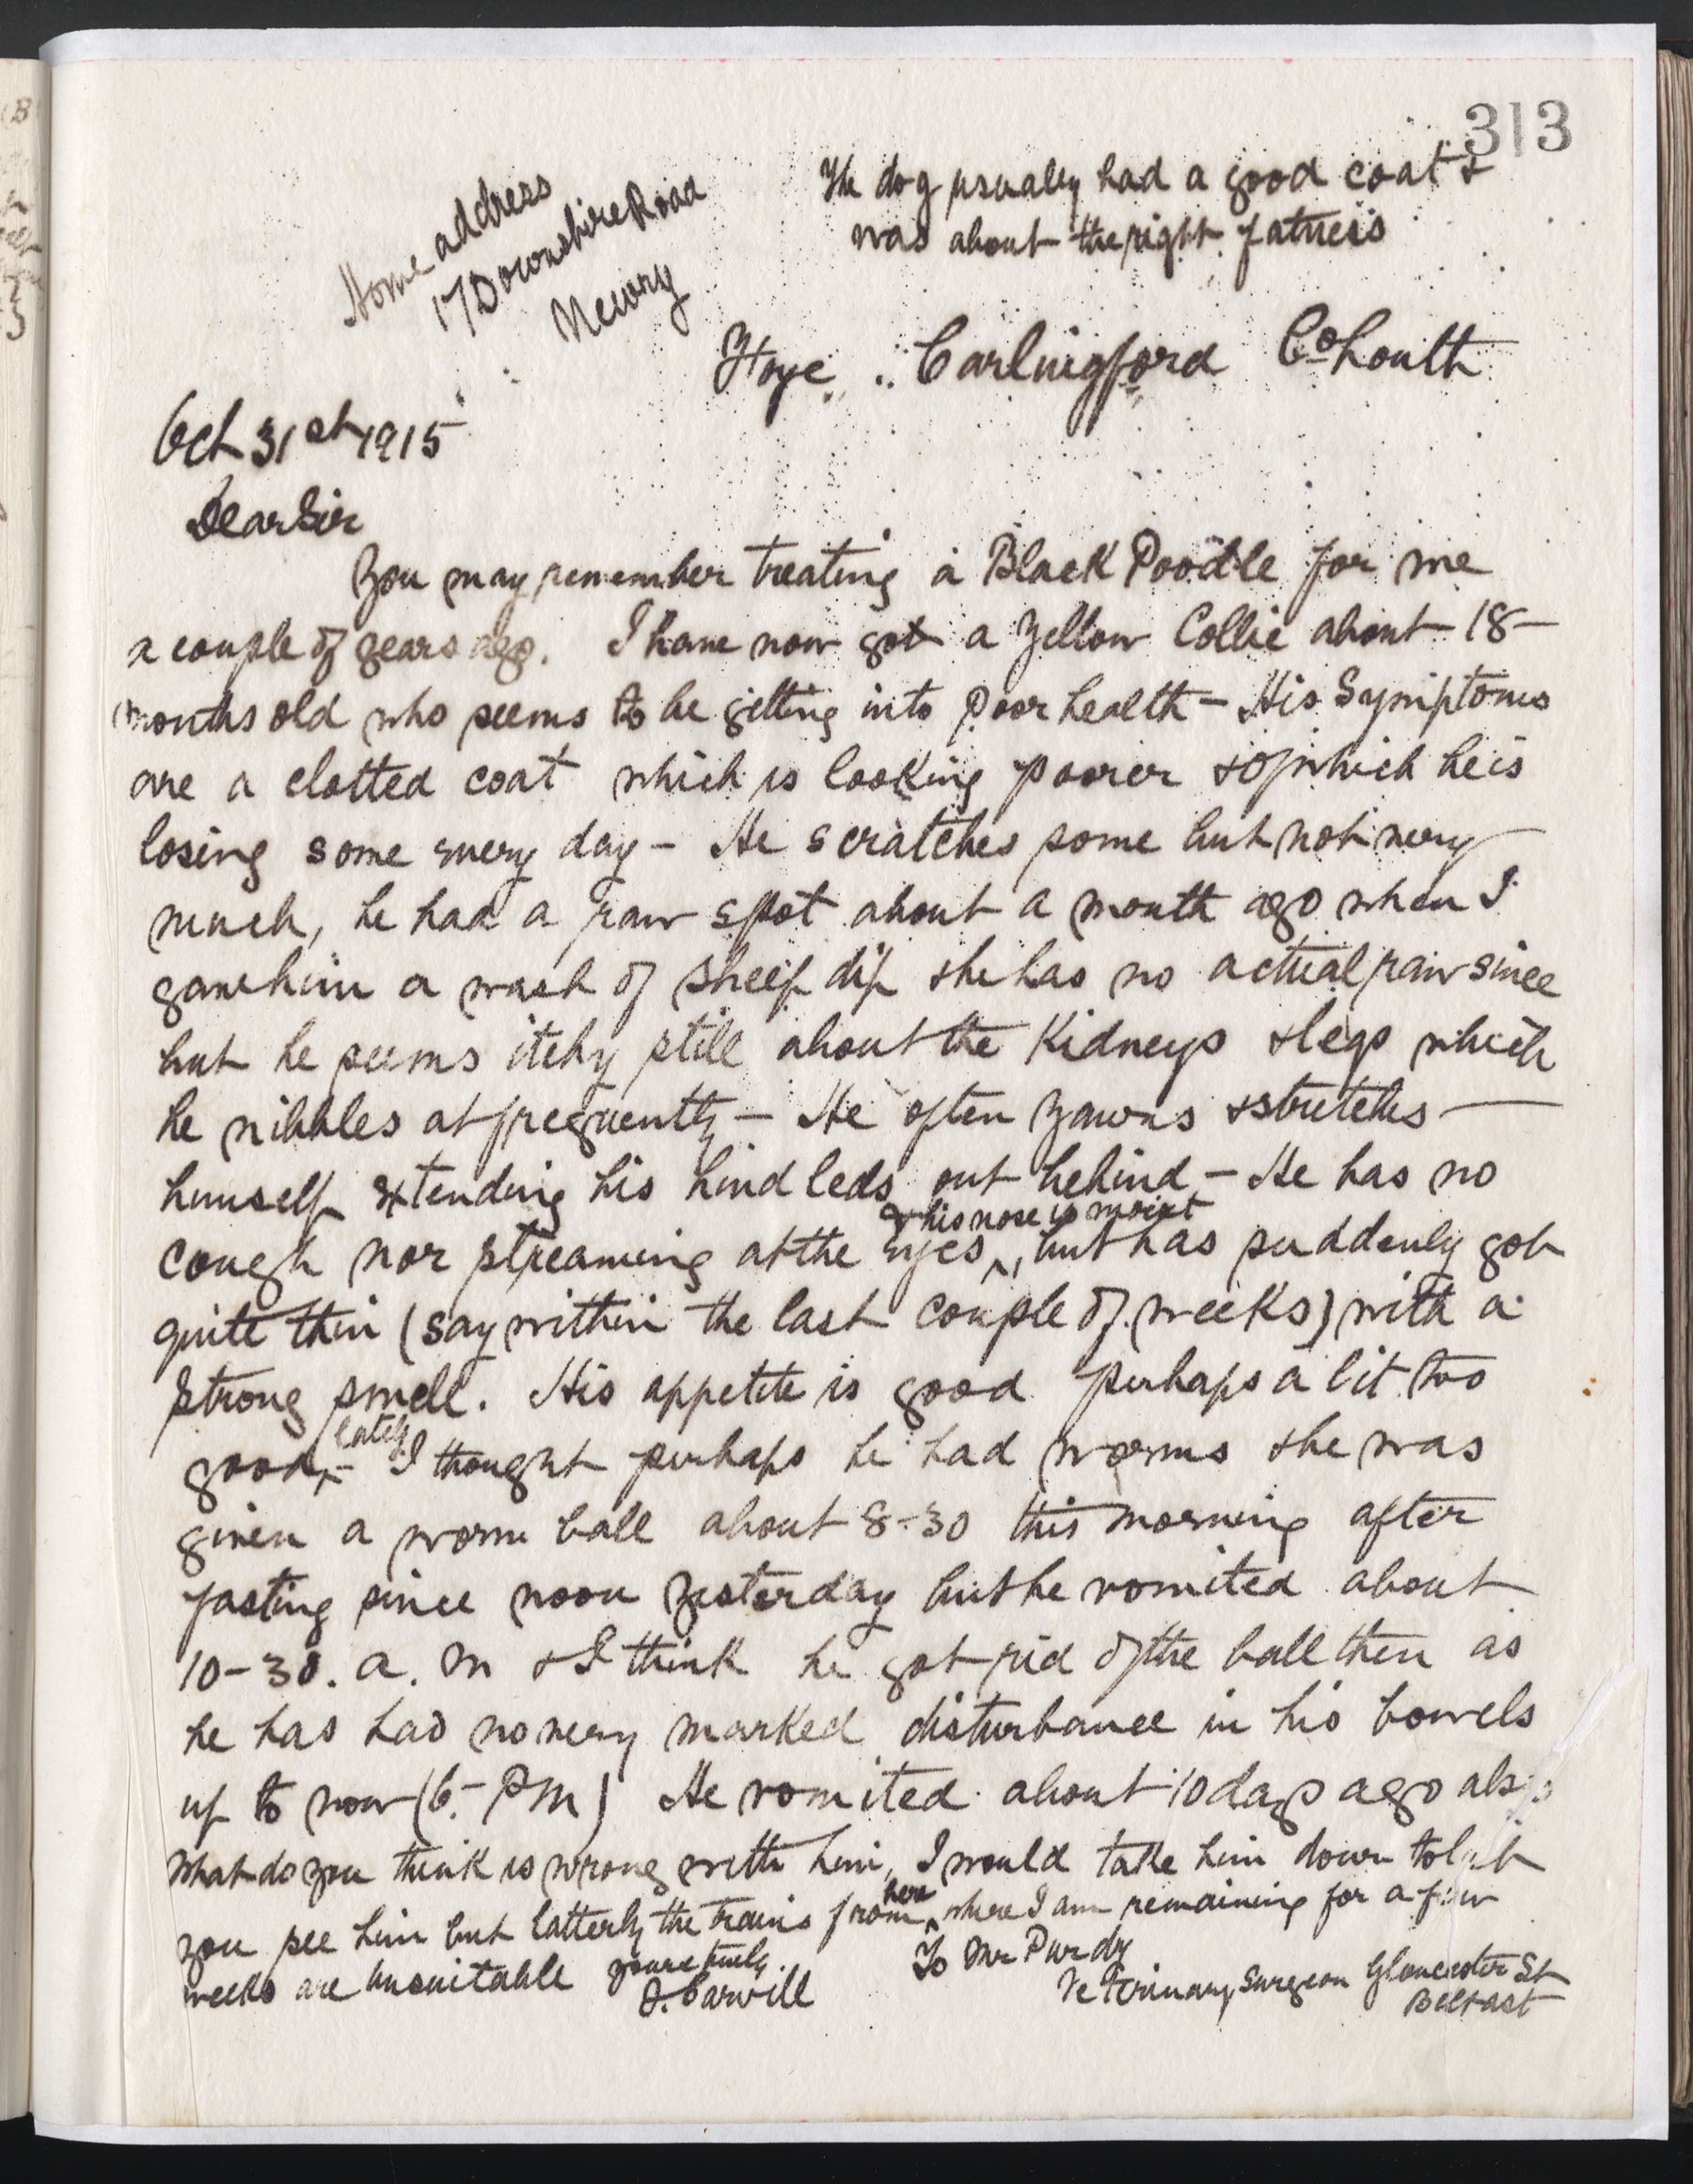 313
The dog usually had a good coat &
was about the right fatness
Home address
17 Downshire Road
Newry
Carlingford Co Louth
Oct 31st 1915
Dear Sir
You may remember treating a Black Poodle for me
a couple of years ago. I have now got a yellow Collie about 18
months old who seems to be getting into poor health - His Symptoms
are a clotted coat which is looking poorer & of which he is
losing some every day - He scratches some but not very
much, he had a raw spot about a month ago when I
gave him a wash of sheep dip & he has no actual raw since
but he seems itchy still about the Kidneys & legs which
he nibbles at frequently - He often yawns & stretches
himself extending his hind leds out behind - He has no
& his nose is moist
cough nor streaming at the eyes ^, but has suddenly got
quite thin (say within the last couple of weeks) with a
strong smell. His appetite is good perhaps a bit too
lately
good ^ - I thought perhaps he had worms & he was
given a worm ball about 8-30 this morning after
fasting since noon yesterday but he vomited about
10-30. a. m & I think he got rid of the ball then as
he has had no very marked disturbance in his bowels
up to now (6.- PM) He vomited about 10 days ago also
What do you think is wrong with him, I would take him down to let
here
you see him but latterly the trains from ^ where I am remaining for a few
weeks are unsuitable yours truly
To Mr Purdy
J. Carvill
Veterinary Surgeon Gloucester St
Belfast